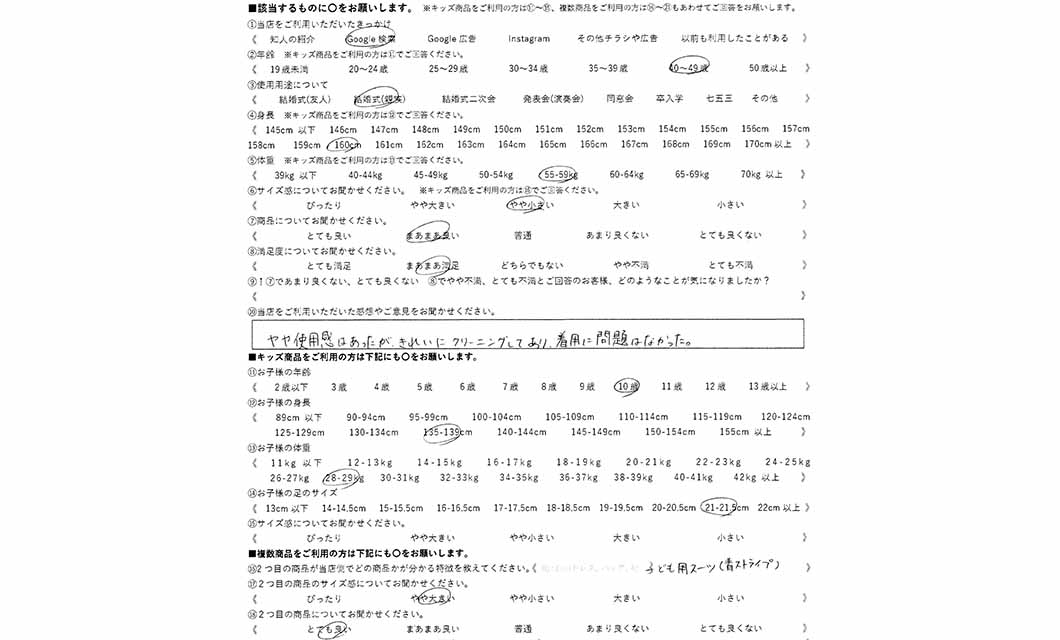 ■該当するものに〇をお願いします。 ※キッズ商品をご利用の方は⑪~⑮、複数商品をご利用の方は⑯~㉑もあわせてご回答をお願いします。
①当店をご利用いただいたきっかけ
《 知人の紹介 Google 検索 Google 広告 Instagram その他チラシや広告 以前も利用したことがある 》
②年齢 ※キッズ商品をご利用の方は⑪でご回答ください。
《 19歳未満 20~24歳 25~29歳 30~34歳 35~39歳 40~49歳 50歳以上 》
③使用用途について
《 結婚式(友人) 結婚式(親族) 結婚式二次会 発表会(演奏会) 同窓会 卒入学 七五三 その他 》
④身長 ※キッズ商品をご利用の方は⑫でご回答ください。
《 145cm 以下 146cm 147cm 148cm 149cm 150cm 151cm 152cm 153cm 154cm 155cm 156cm 157cm
158cm 159cm 160cm 161cm 162cm 163cm 164cm 165cm 166cm 167cm 168cm 169cm 170cm以上 》
⑤体重 ※キッズ商品をご利用の方は⑬でご回答ください。
《 39kg 以下 40-44kg 45-49kg 50-54kg 55-59kg 60-64kg 65-69kg 70kg 以上 》
⑥サイズ感についてお聞かせください。 ※キッズ商品をご利用の方は⑮でご回答ください。
《 ぴったり やや大きい やや小さい 大きい 小さい 》
⑦商品についてお聞かせください。
《 とても良い まあまあ良い 普通 あまり良くない とても良くない 》
⑧満足度についてお聞かせください。
《 とても満足 まあまあ満足 どちらでもない やや不満 とても不満 》
⑨↑⑦であまり良くない、とても良くない ⑧でやや不満、とても不満とご回答のお客様、どのようなことが気になりましたか?
《 》
⑩当店をご利用いただいた感想やご意見をお聞かせください。
やや使用感はあったが、きれいにクリーニングしており、着用に問題はなかった。
■キッズ商品をご利用の方は下記にも〇をお願いします。
⑪お子様の年齢
《 2歳以下 3歳 4歳 5歳 6歳 7歳 8歳 9歳 10歳 11歳 12歳 13歳以上 》
⑫お子様の身長
《 89cm 以下 90-94cm 95-99cm 100-104cm 105-109cm 110-114cm 115-119cm 120-124cm
125-129cm 130-134cm 135-139cm 140-144cm 145-149cm 150-154cm 155cm 以上 》
⑬お子様の体重
《 11kg 以下 12-13kg 14-15kg 16-17kg 18-19kg 20-21kg 22-23kg 24-25kg
26-27kg 28-29kg 30-31kg 32-33kg 34-35kg 36-37kg 38-39kg 40-41kg 42kg 以上 》
⑭お子様の足のサイズ
《 13cm以下 14-14.5cm 15-15.5cm 16-16.5cm 17-17.5cm 18-18.5cm 19-19.5cm 20-20.5cm 21-21.5cm 22cm以上 》
⑮サイズ感についてお聞かせください。
《 ぴったり やや大きい やや小さい 大きい 小さい 》
■複数商品をご利用の方は下記にも〇をお願いします。
⑯2つ目の商品が当店側でどの商品かが分かる特徴を教えてください。《 子ども用スーツ(青ストライプ) 》
⑰2つ目の商品のサイズ感についてお聞かせください。
《 ぴったり やや大きい やや小さい 大きい 小さい 》
⑱2つ目の商品についてお聞かせください。
《 とても良い まあまあ良い 普通 あまり良くない とても良くない 》